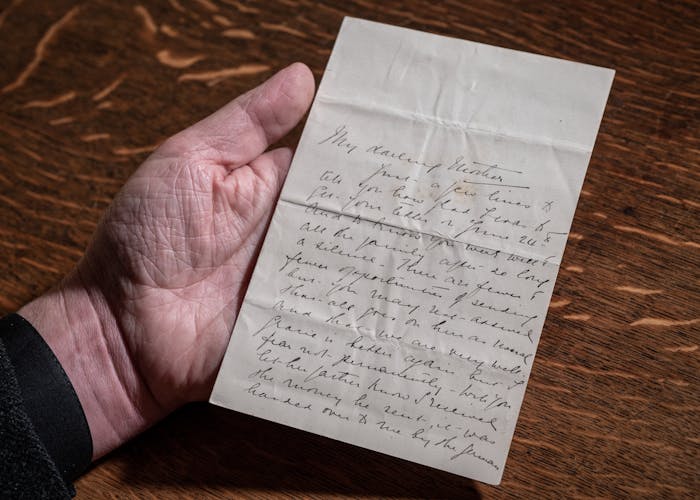 My darling Mother
Just a few lines to
tell you how glad I was to
get your letter of June 24th
and to know you were well &
all the family after so long
a silence. There are fewer &
fewer opportunities of sending
but you may rest assured
that all goes on here as usual
and that we are very well.
is better again but I
fear not permanently. Will you
let her father know I received
the money he sent, it was
handed over to me by the German